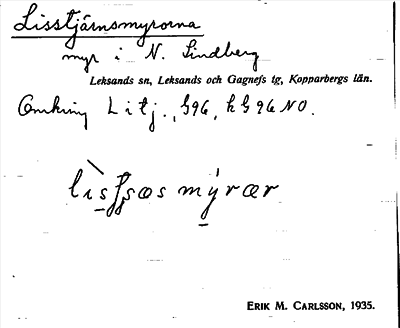 Lisstjärnsmyrorna
myr i N. Lindberg
Leksands sn, Leksands och Gagnefs tg, Kopparbergs län.
Omkring Litj., G96, h G96 NO.
Erik M. Carlsson, 1935.